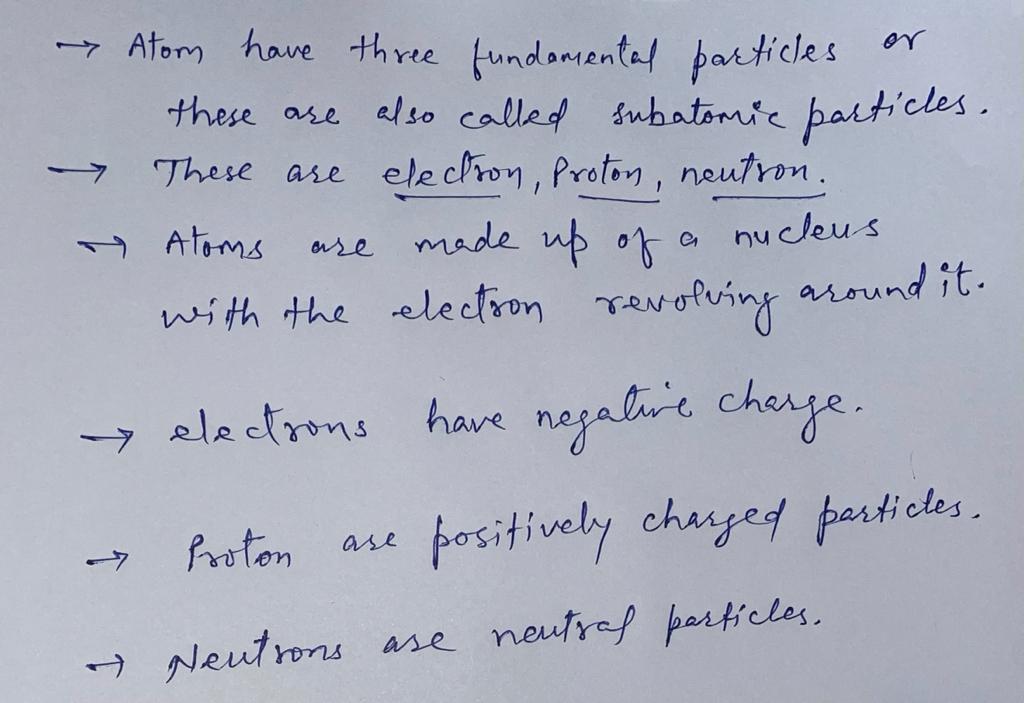 → Atom have three fundamental particles or
these are also called subatomic particles.
→ These are electron, Proton, neutron.
→ Atoms are made up of a nucleus
with the electron revolving around it.
→ electrons have negative charge.
→ Proton are positively charged particles.
→ Neutrons are neutral particles.